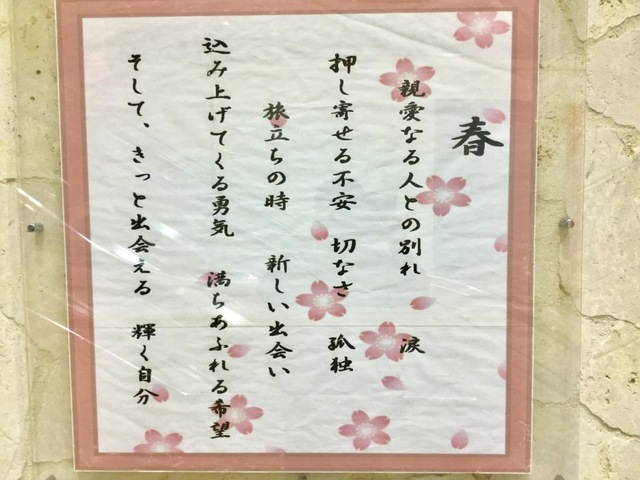 春
親愛なる人との別れ　涙
押し寄せる不安　切なさ　孤独
旅立ちの時　新しい出会い
込み上げてくる勇気　満ちあふれる希望
そして、きっと出会える　輝く自分